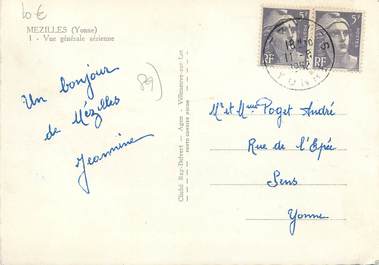 10€
MEZILLES (Yonne)
1 - Vue générale aérienne
89
Un bonjour
de Mézilles
Jeannine
Cliché Ray-Delvert - Agen - Villeneuve-sur-Lot
5F
5F
POSTES
RF
RF
YONNE
Mr et Mme Poget André
Rue de l'Epée
Sens
Yonne